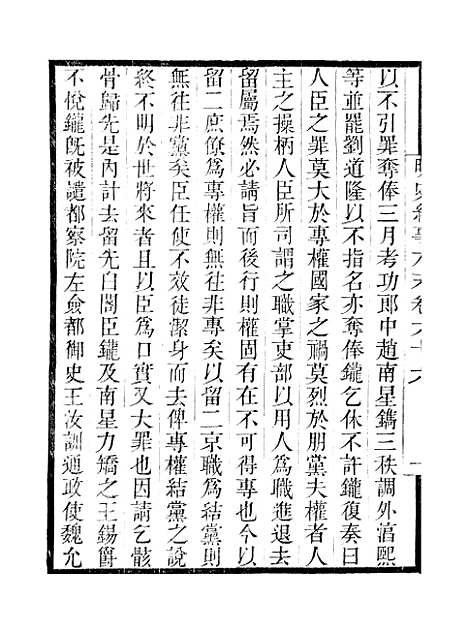 以不引罪奪俸三月考功郎中趙南星鐫三秩調外淓熙
等並罷劉道隆以不指名亦奪俸鑨乞休不許鑨復奏曰
人臣之罪莫大於專權國家之禍莫烈於朋黨夫權者人
主之操柄人臣所司謂之職掌吏部以用人爲職進退去
留屬焉然必請旨而後行則權固有在不可得專也今以
留二庶僚爲專權則無往非專矣以留二京職爲結黨則
無往非黨矣臣任使不效徒潔身而去俾專權結黨之說
終不明於世將來者且以臣爲口實又大罪也因請乞骸
骨歸先是內計去留先白閣臣鑨及南星力矯之王錫爵
不悅鑨旣被譴都察院左僉都御史王汝訓通政使魏允